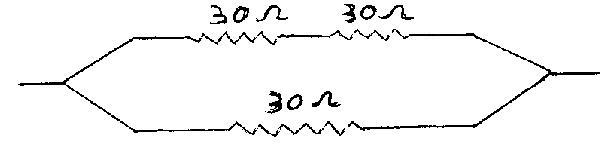 30Ω 30Ω
30Ω